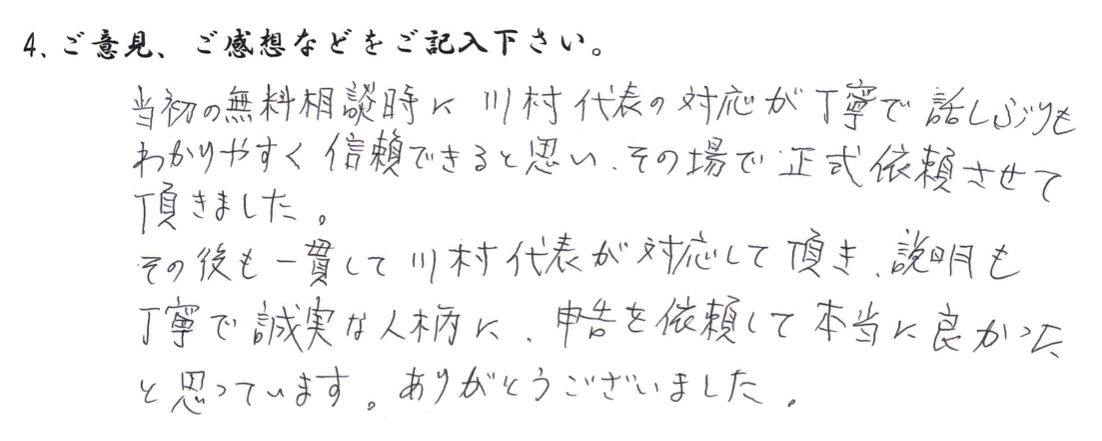 4、ご意見、ご感想などをご記入下さい。
当初の無料相談時に川村代表の対応が丁寧で話しぶりも
わかりやすく信頼できると思い、その場で正式依頼させて
頂きました。
その後も一貫して川村代表が対応して頂き、説明も
丁寧で誠実な人柄に、申告を依頼して本当に良かった
と思っています。ありがとうございました。